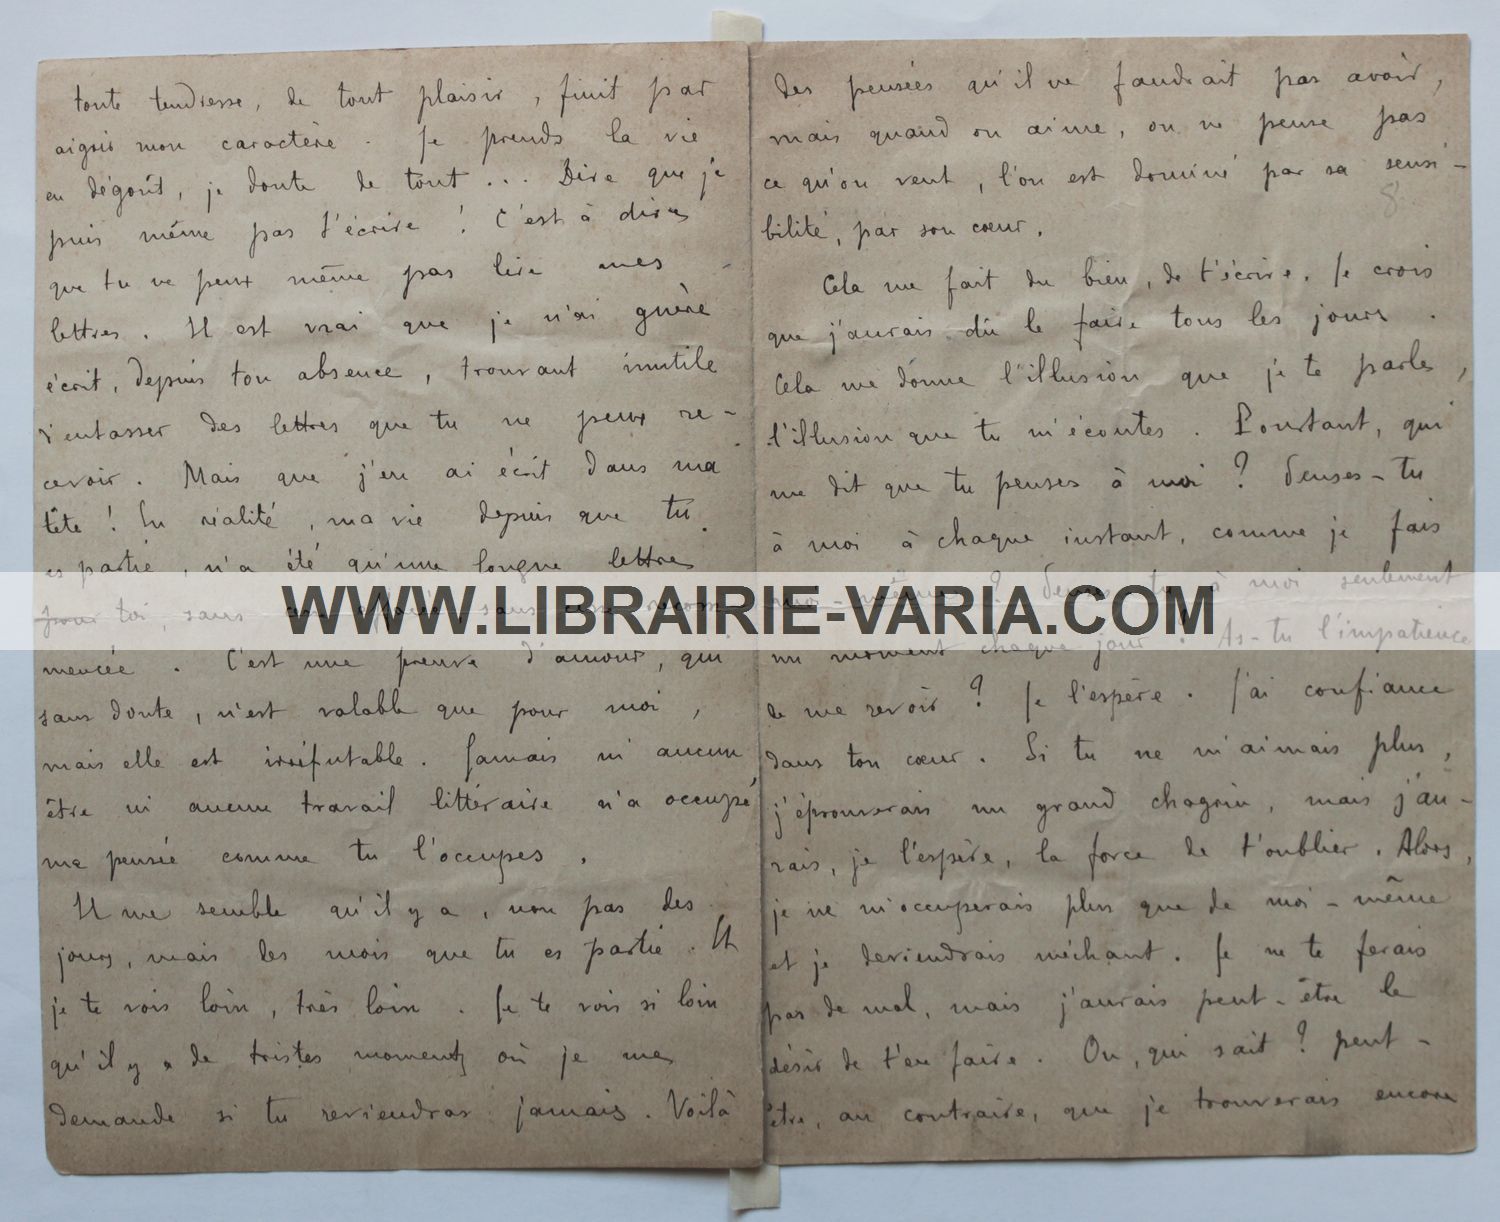 toute tendresse, de tout plaisir, finit par
aigrir mon caractère. Je prends la vie
en dégoût, je doute de tout... Dire que je
puis même pas t'écrire ! C'est à dire
que tu ne peux même pas lire mes
lettres. Il est vrai que je n'ai guère
écrit, depuis ton absence, trouvant inutile
d'entasser des lettres que tu ne peux re-
cevoir. Mais que j'en ai écrit dans ma
tête ! En réalité, ma vie depuis que tu
es partie, n'a été qu'une longue lettre
pour toi, sans cesse effacée, sans cesse recom
mencée. C'est une preuve d'amour, qui
sans doute, n'est valable que pour moi,
mais elle est irréfutable. Jamais ni aucun
être ni aucun travail littéraire n'a occupé
ma pensée comme tu l'occupes.
Il me semble qu'il y a, non pas des
jours, mais des mois que tu es partie. Et
je te vois loin, très loin. Je te vois si loin
qu'il y a de tristes moments où je me
demande si tu reviendras jamais. Voilà
des pensées qu'il ne faudrait pas avoir,
mais quand on aime, on ne pense pas
ce qu'on veut, l'on est dominé par sa sensi-
bilité, par son cœur.
8
Cela me fait du bien, de t'écrire. Je crois
que j'aurais dû le faire tous les jours.
Cela me donne l'illusion que je te parle,
l'illusion que tu m'écoutes. Pourtant, qui
me dit que tu penses à moi ? Penses-tu
à moi à chaque instant, comme je fais
moi-même ? Penses-tu à moi seulement
un moment chaque jour ? As-tu l'impatience
de me revoir ? Je l'espère. J'ai confiance
dans ton cœur. Si tu ne m'aimais plus,
j'éprouverais un grand chagrin, mais j'au-
rais, je l'espère, la force de t'oublier. Alors,
je ne m'occuperais plus que de moi-même
et je deviendrais méchant. Je ne te ferais
pas de mal, mais j'aurais peut-être le
désir de t'en faire. Ou, qui sait ? peut-
être, au contraire, que je trouverais encore
WWW.LIBRAIRIE-VARIA.COM